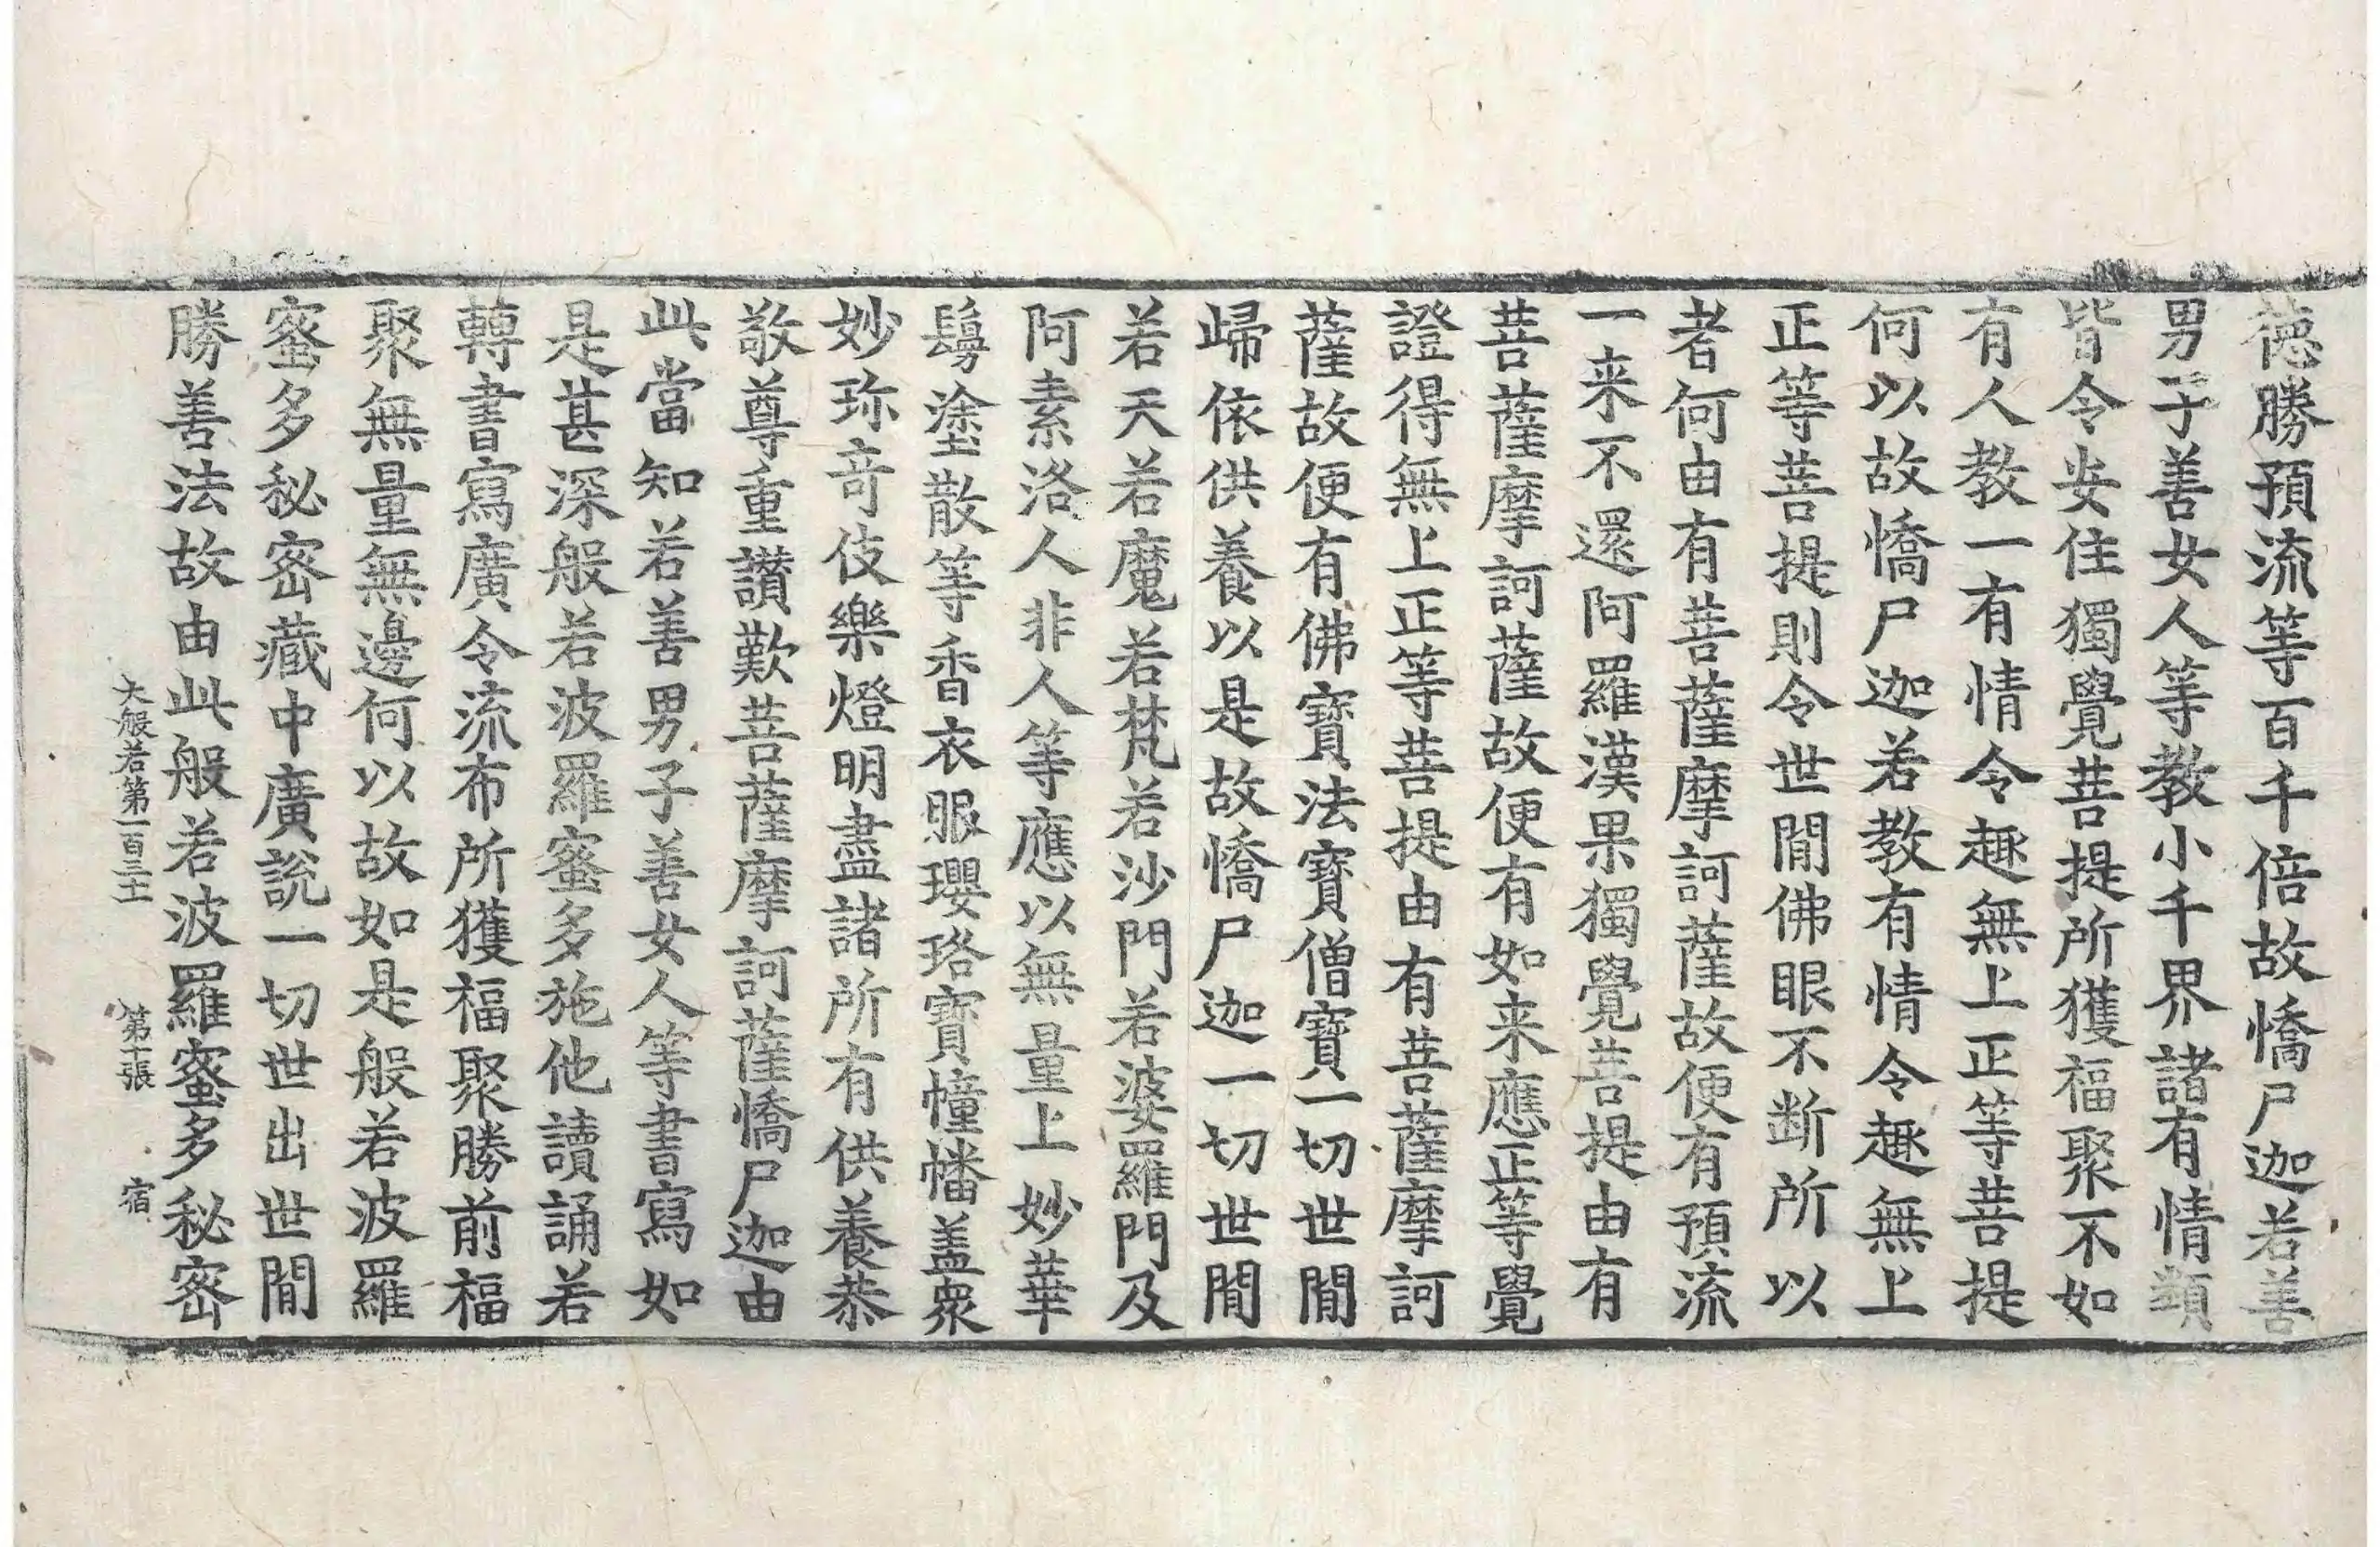 德勝預流等百千倍故憍尸迦若善
男子善女人等教小千界諸有情類
皆令安住獨覺菩提所獲福聚不如
有人教一有情令趣無上正等菩提
何以故憍尸迦若教有情令趣無上
正等菩提則令世閒佛眼不断所以
者何由有菩薩摩訶薩故便有預流
一来不還阿羅漢果獨覺菩提由有
菩薩摩訶薩故便有如来應正等覺
證得無上正等菩提由有菩薩摩訶
薩故便有佛寶法寶僧寶一切世閒
歸依供養以是故憍尸迦一切世閒
若天若魔若梵若沙門若婆羅門及
阿素洛人非人等應以無量上妙華
鬘塗散等香衣服瓔珞寶幢幡盖衆
妙珎竒伎樂燈明盡諸所有供養恭
敬尊重讃歎菩薩摩訶薩憍尸迦由
此當知若善男子善女人等書寫如
是甚深般若波羅蜜多施他讀誦若
轉書寫廣令流布所獲福聚勝前福
聚無量無邊何以故如是般若波羅
蜜多秘密藏中廣說一切世出世閒
勝善法故由此般若波羅蜜多秘密
大般若第一百三十 第十張 宿